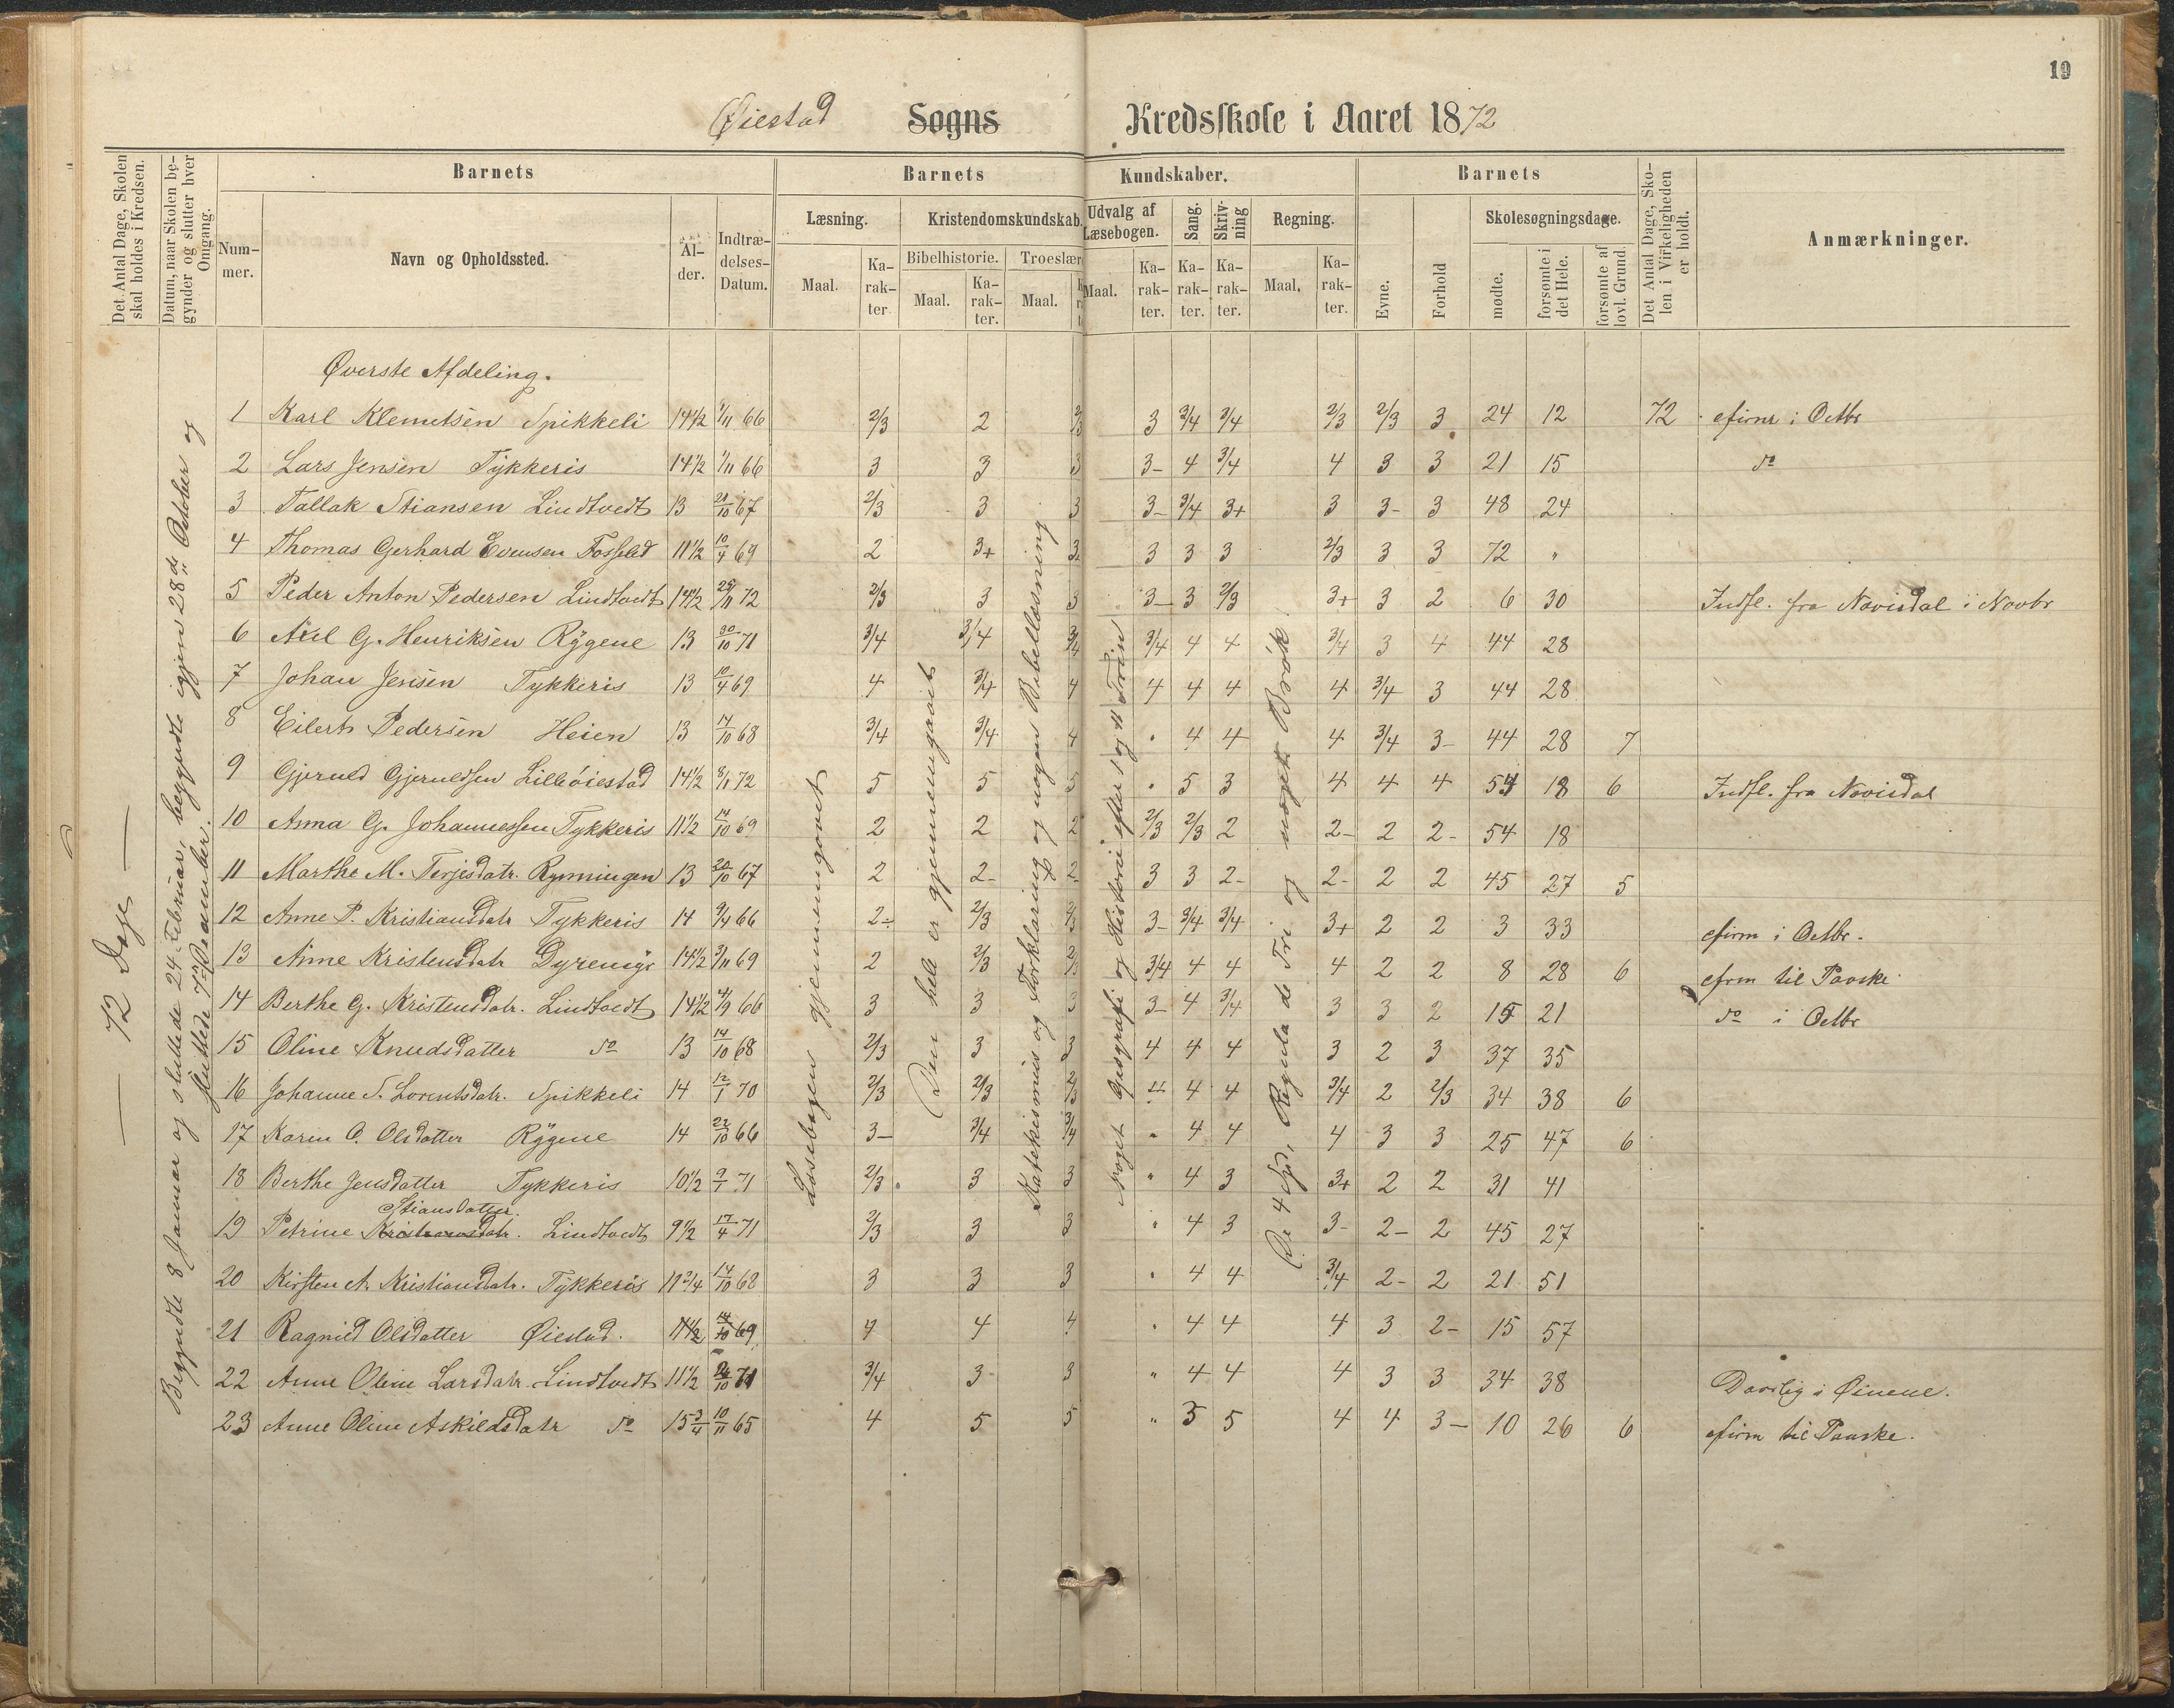 19
Øiestad Sogns Kredsskole i Aaret 1872
Det Antal Dage, Skolen skal holdes i Kredsen.
Datum, naar Skolen begynder og slutter hver Omgang.
Barnets
Barnets Kundskaber.
Barnets
Det Antal Dage, Skolen i Virkeligheden er holdt.
Anmærkninger.
Nummer.
Navn og Opholdssted.
Alder.
Indtrædelses-Datum.
Læsning.
Kristendomskundskab.
Udvalg af Læsebogen.
Sang.
Skrivning
Regning.
Evne.
Forhold
Skolesøgningsdage.
Maal.
Karakter
Bibelhistorie.
Troeslær
Maal.
Karakter.
Maal.
Maal.
Karakter.
Karakter.
Karakter.
Maal.
Karakter.
mødte.
forsømte i det Hele.
forsømte af lovl. Grund.
72 Dage
Begyndte 8 Januar og sluttede 24 Februar, begyndte igjen 28de October og sluttede 7de December.
Læsebogen gjennemgaaet
Den hele er gjennemgaaet
Katekismus og Forklaring og nogen Bibellæsning
Noget Geografi og Historie efter 1 og 2 Trin
De 4 Sp., Regula de Tri og noget Brøk
Øverste Afdeling.
1 Karl Klemetsen Spikkeli 14½ 1/11 66 2/3 2 2/3 3 3/4 3/4 2/3 2/3 3 24 12 72 efirm i Octbr
2 Lars Jensen Tykkeris 14½ 1/11 66 3 3 3 3- 4 3/4 4 3 3 21 15 do
3 Tallak Stiansen Lindtvedt 13 21/10 67 2/3 3 3 3- 3/4 3+ 3 3- 3 48 24
4 Thomas Gerhard Evensen Fosseld 11½ 10/4 69 2 3+ 3+ 3 3 3 2/3 3 3 72 "
5 Peder Anton Pedersen Lindtvedt 14½ 25/11 72 2/3 3 3 3- 3 2/3 3+ 3 2 6 30 Indfl. fra Navisdal i Novbr
6 Axel G. Henriksen Rygene 13 30/10 71 3/4 3/4 3/4 3/4 4 4 3/4 3 4 44 28
7 Johan Jensen Tykkeris 13 10/4 69 4 3/4 4 4 4 4 4 3/4 3 44 28
8 Eilert Pedersen Heien 13 14/10 68 3/4 3/4 4 " 4 4 4 3/4 3- 44 28 7
9 Gjeruld Gjeruldsen Lilleøiestad 14½ 8/1 72 5 5 5 " 5 3 4 4 4 54 18 6 Indfl. fra Navisdal
10 Anna G. Johannessen Tykkeris 11½ 14/10 69 2 2 2 2/3 2/3 2 2- 2 2- 54 18
11 Marthe M. Terjesdatr. Rynningen 13 20/10 67 2 2- 2- 3 3 2- 2- 2 2 45 27 5
12 Anne P. Kristiansdatr Tykkeris 14 9/4 66 2- 2/3 2/3 3- 3/4 3/4 3+ 2 2 3 33 efirm i Octbr.
13 Anne Kristensdatr Dyremyr 14½ 3/11 69 2 2/3 2/3 3/4 4 4 4 2 2 8 28 6 efrm til Paaske
14 Berthe G. Kristensdatr. Lindtvedt 14½ 4/9 66 3 3 3 3- 4 3/4 3 3 2 15 21 do i Octbr
15 Oline Knudsdatter do 13 14/10 68 2/3 3 3 4 4 4 3 2 3 37 35
16 Johanne S. Lorentsdatr. Spikkeli 14 12/1 70 2/3 2/3 2/3 4 4 4 3/4 2 2/3 34 38 6
17 Karen O. Olsdatter Rygene 14 22/10 66 3- 3/4 3/4 " 4 4 4 3 3 25 47 6
18 Berthe Jensdatter Tykkeris 10½ 9/1 71 2/3 3 3 " 4 3 3+ 2 2 31 41
Stiansdatter.
19 Petrine Kristiansdatr. Lindtvedt 9½ 17/4 71 2/3 3 3 " 4 3 3- 2- 2 45 27
20 Kirsten A. Kristiansdatr. Tykkeris 11¾ 14/10 68 3 3 3 " 4 4 3/4 2- 2 21 51
21 Ragnild Olsdatter Øiestad. 11½ 14/10 69 4 4 4 " 4 4 4 3 2- 15 57
22 Anne Oline Larsdatr. Lindtvedt 11½ 24/10 71 3/4 3 3 " 4 4 4 3 3 34 38 Daarlig i Øinene.
23 Anne Oline Askildsdatr do 15¾ 10/11 65 4 5 5 " 5 5 4 4 3- 10 26 6 efirm til Paaske.